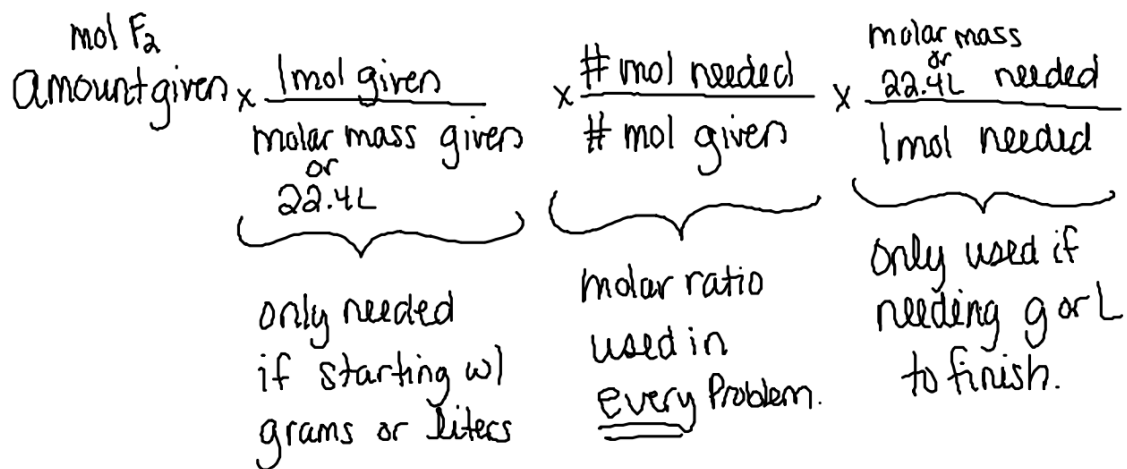 mol F₂
amount given x 1mol given / molar mass given or 22.4L x # mol needed / # mol given x molar mass or 22.4L needed / 1mol needed
only needed
if starting w/
grams or liters
molar ratio
used in
every Problem.
only used if
needing g or L
to finish.